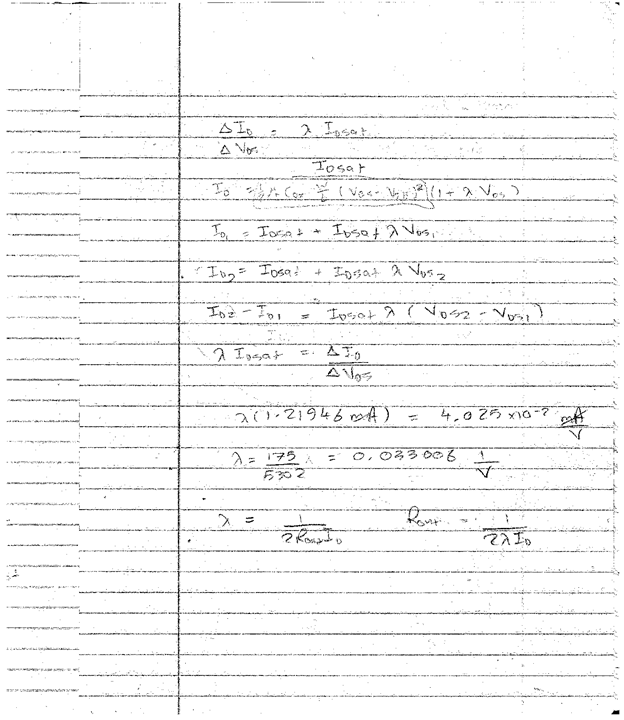 ΔI_D / ΔV_DS = λ I_Dsat
I_Dsat
I_D = ½ μ C_ox W/L (V_GS - V_TH)² (1 + λ V_DS)
I_D1 = I_Dsat + I_Dsat λ V_DS1
I_D2 = I_Dsat + I_Dsat λ V_DS2
I_D2 - I_D1 = I_Dsat λ (V_DS2 - V_DS1)
λ I_Dsat = ΔI_D / ΔV_DS
λ(1.21946 mA) = 4.025 x10^-2 mA/V
λ = 175/5302 = 0.033006 1/V
λ = 1 / 2R_out I_D R_out = 1 / 2λI_D